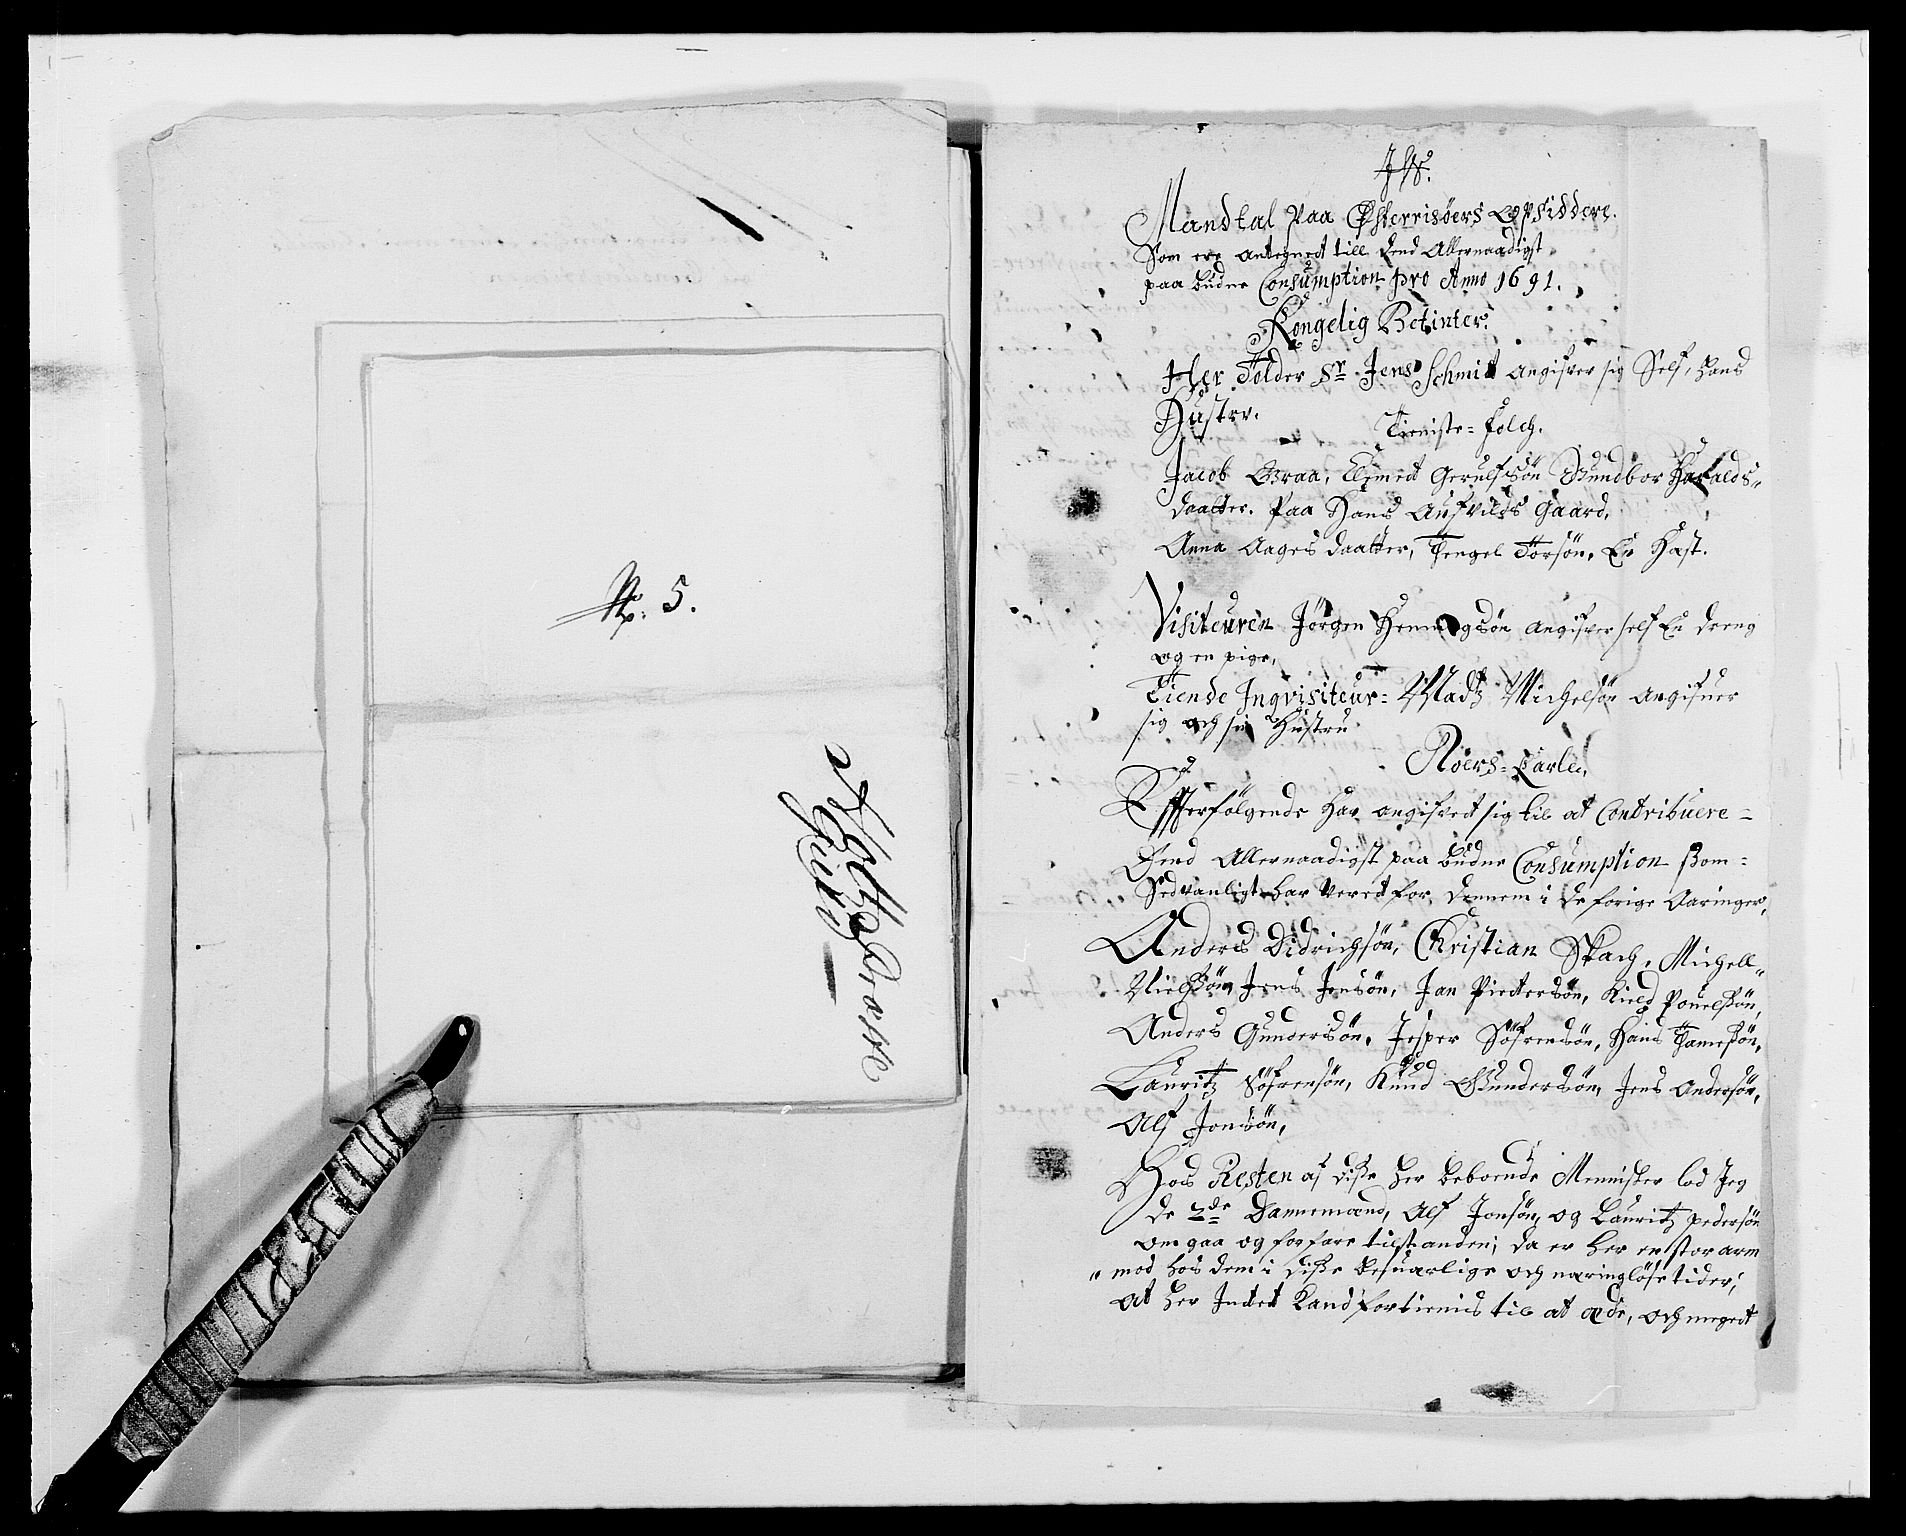 No. 5.
JHS.
Mandtal paa Østerrisöers opsiddere.
Som ere antegnet till dend Allernaadigst
paa budne Consumption pro Anno 1691.
Kongelig Betinter.
Her Tolder Sr. Jens Schmit angifver sig Self, hans
Hustru.
Tieniste-folch.
Jacob Graa, Elsmed Gerulfsön Gundbor Haralds-
daatter. Paa Hans Gaard,
Anna Aages daatter, Tengel Torsön, En Hest.
Visiteuren Jörgen Henningsön angifver self En dreng
og en pige,
Tiende Inqvisiteur- Madtz Michelsön angifuer
sig och sin Hustru
Roers-Karle,
Effterfölgende Har angifvet sig til at Contribuere-
Dend Allernaadigst paa budne Consumption som-
Sedvanligt har veret for dennem i de forige Aaringer,
Anders Didrichsön, Christian Skach, Michell-
Nielssön Jens Jensön, Jan Pietersön, Kield Pouelssön,
Anders Gundersön, Jesper Söfrensön, Hans Tamesön,
Lauritz Söfrensön, Knud Gundersön, Jens Andersön,
Alf Jonsön,
Hos Resten af disse her beboende Mennisker lod Jeg
de 2de Dannemænd, Alf Jonsön, og Lauritz pedersön
omgaa og forfare tilstanden; da er her en stor arm
"mod hos dem i disse besuarlige och næringlöse tider;
at her Intet Kand fortienis til at æde, och meget